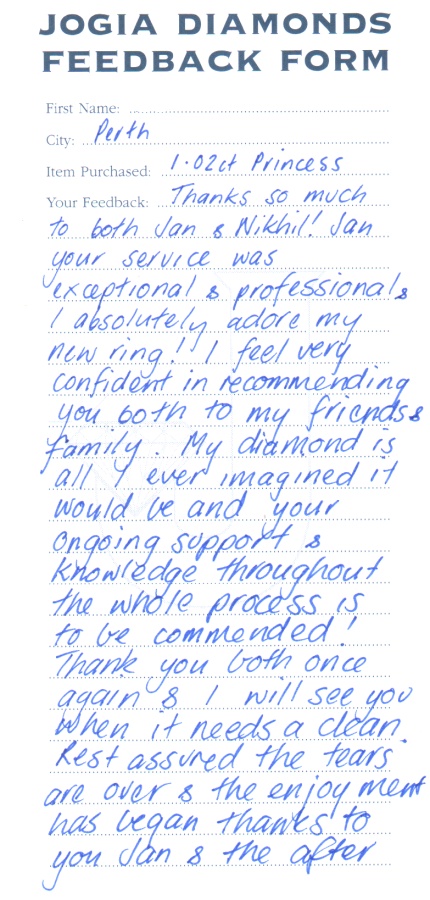 JOGIA DIAMONDS
FEEDBACK FORM
First Name:
City: Perth
Item Purchased: 1.02ct Princess
Your Feedback: Thanks so much
to both Jan & Nikhil! Jan
your service was
exceptional & professional &
I absolutely adore my
new ring! I feel very
confident in recommending
you both to my friends &
family. My diamond is
all I ever imagined it
would be and your
ongoing support &
knowledge throughout
the whole process is
to be commended!
Thank you both once
again & I will see you
when it needs a clean.
Rest assured the tears
are over & the enjoyment
has began thanks to
you Jan & the after